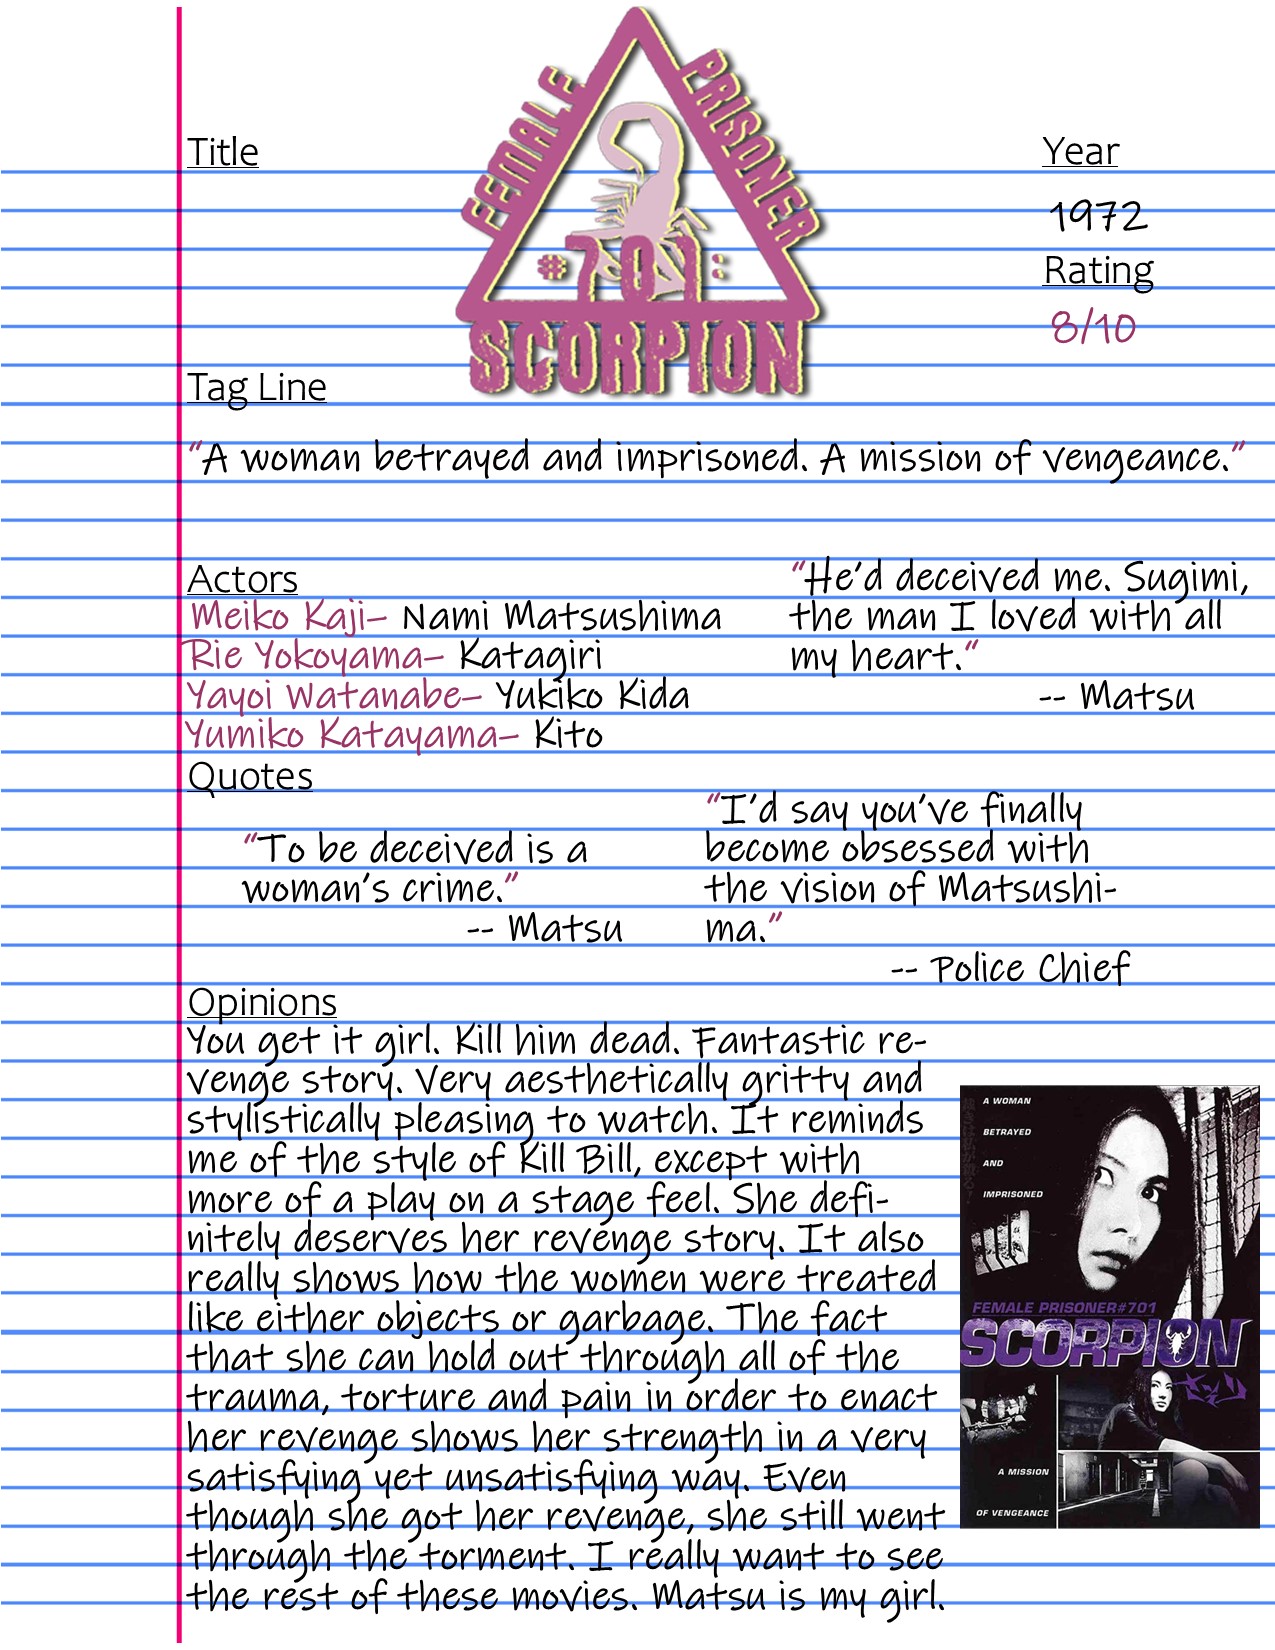 FEMALE
PRISONER
#701:
SCORPION
Title
Year
1972
Rating
8/10
Tag Line
"A woman betrayed and imprisoned. A mission of vengeance."
Actors
Meiko Kaji– Nami Matsushima
Rie Yokoyama– Katagiri
Yayoi Watanabe– Yukiko Kida
Yumiko Katayama– Kito
"He'd deceived me. Sugimi,
the man I loved with all
my heart."
-- Matsu
Quotes
"To be deceived is a
woman's crime."
-- Matsu
"I'd say you've finally
become obsessed with
the vision of Matsushi-
ma."
-- Police Chief
Opinions
You get it girl. Kill him dead. Fantastic re-
venge story. Very aesthetically gritty and
stylistically pleasing to watch. It reminds
me of the style of Kill Bill, except with
more of a play on a stage feel. She defi-
nitely deserves her revenge story. It also
really shows how the women were treated
like either objects or garbage. The fact
that she can hold out through all of the
trauma, torture and pain in order to enact
her revenge shows her strength in a very
satisfying yet unsatisfying way. Even
though she got her revenge, she still went
through the torment. I really want to see
the rest of these movies. Matsu is my girl.
A WOMAN
BETRAYED
AND
IMPRISONED
FEMALE PRISONER#701
SCORPION
さそり
A MISSION
OF VENGEANCE